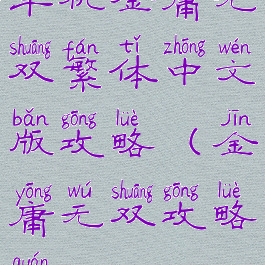 shuāng fán tǐ zhōng wén
双繁体中文
bǎn gōng lüè jīn
版攻略(金
yōng wú shuāng gōng lüè
庸无双攻略